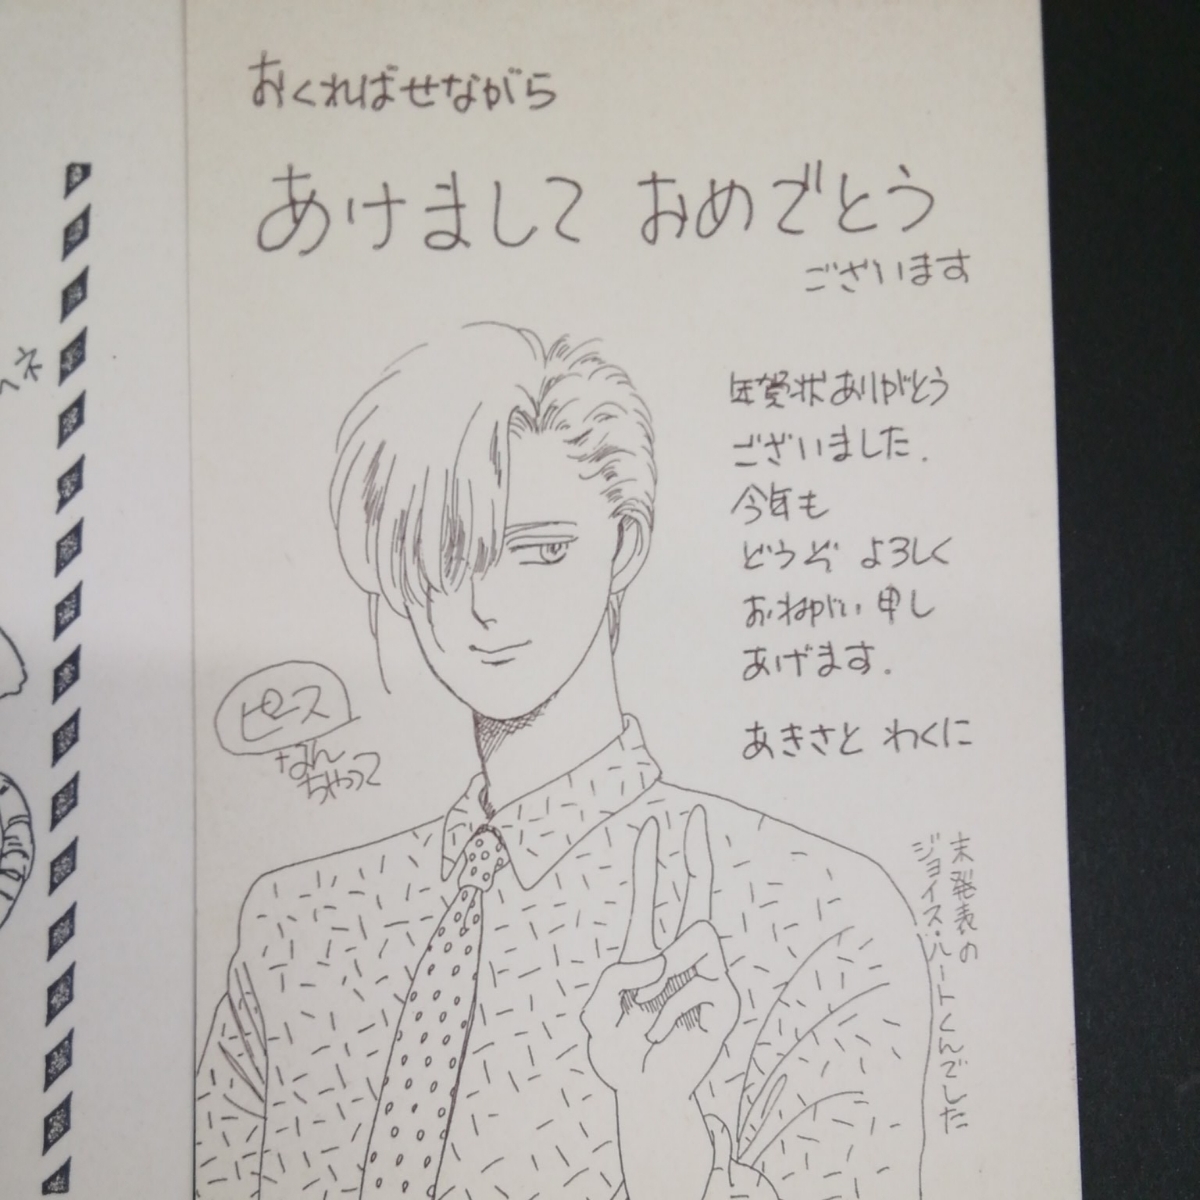 おくればせながら
あけまして おめでとう
ございます
年賀状ありがとう
ございました.
今年も
どうぞ よろしく
おねがい 申し
あげます.
あきさと わくに
ピース
なん
ちゃって
未発表の
ジョイス・ハートくんでした
ネ